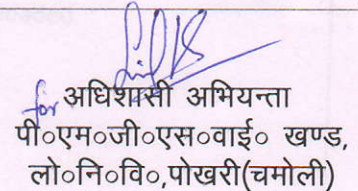 for अधिशासी अभियन्ता
पी०एम०जी०एस०वाई० खण्ड,
लो०नि०वि०,पोखरी(चमोली)